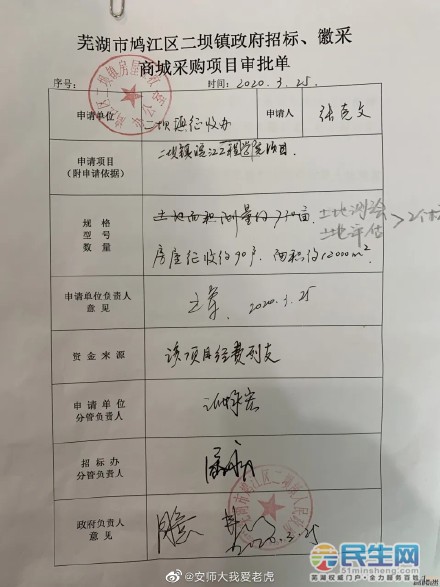 芜湖市鸠江区二坝镇政府招标、徽采
商城采购项目审批单
序号：
时间：2020.3.25.
申请单位
二坝镇征收办
申请人
张克文
申请项目
（附申请依据）
二坝镇滨江工程学院项目.
规格
型号
数量
土地面积测量约
亩.
土地测绘
土地评估
房屋征收约90户，面积约12000m²
申请单位负责人
意见
2020.3.25
资金来源
该项目经费列支
申请单位
分管负责人
招标办
分管负责人
政府负责人
意见
2020.3.25
@安师大我爱老虎
民生网
www.51minsheng.com
芜湖权威门户·合力服务百姓